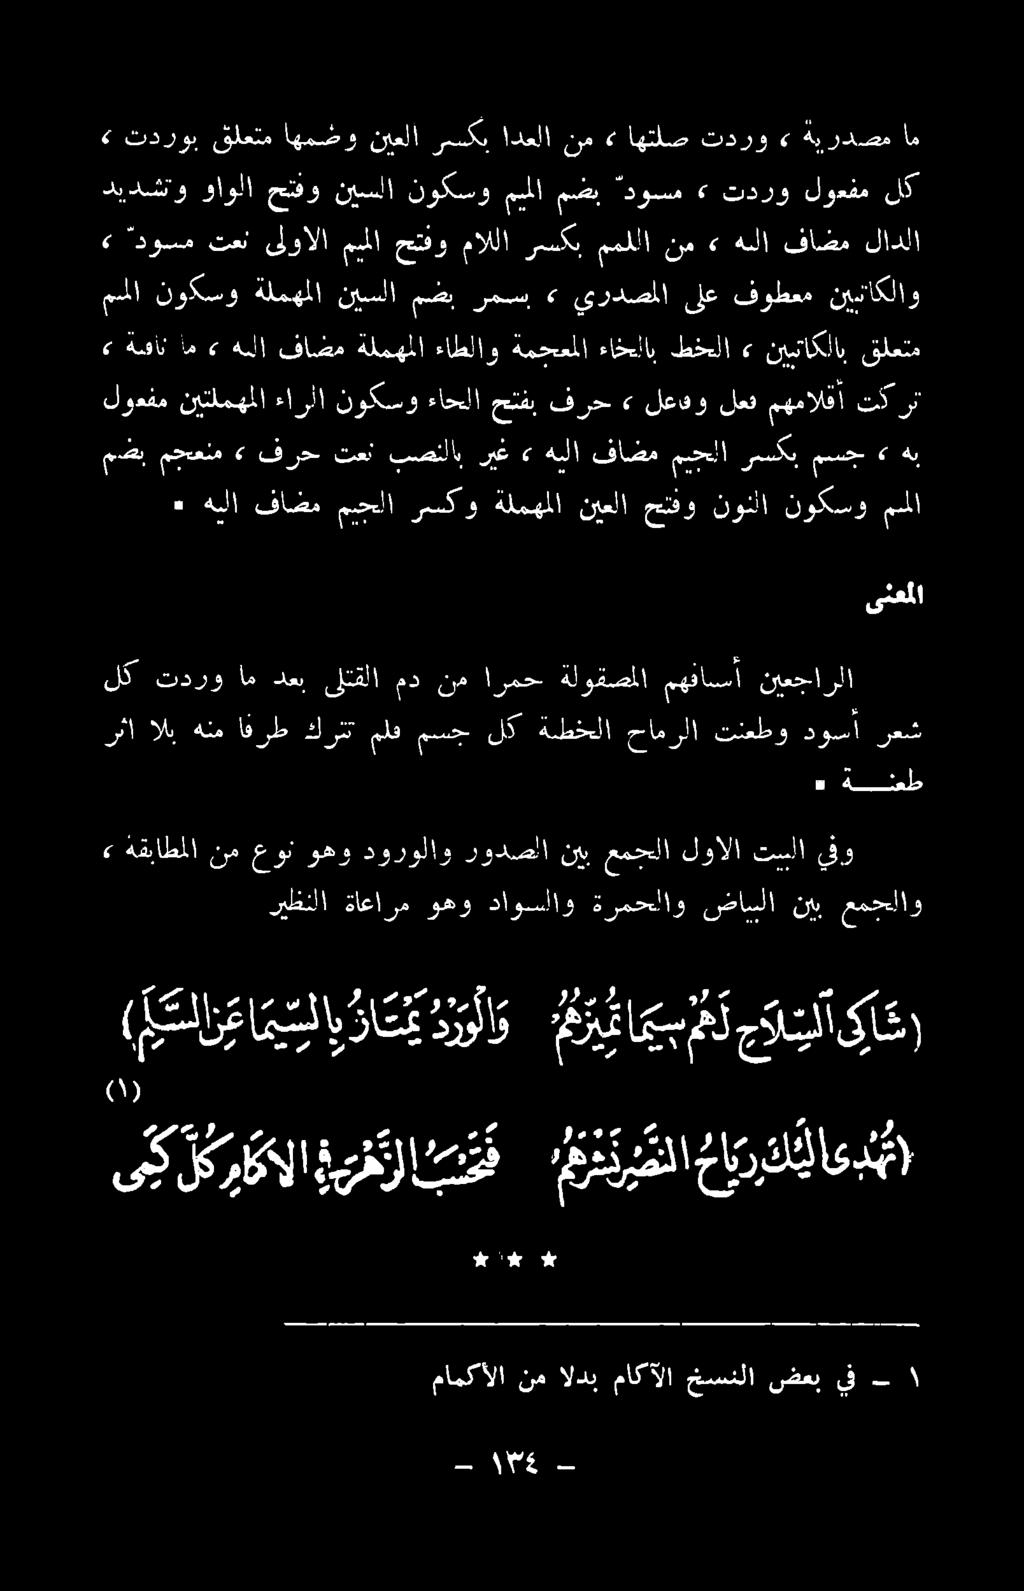 ما مصدرية ، وردت صلتها ، من العدا بكسر العين وضمها متعلق بوردت ،
كل مفعول وردت ، مسودّ بضم الميم وسكون السين وفتح الواو وتشديد
الدال مضاف اليه ، من اللمم بكسر اللام وفتح الميم الاولى نعت مسودّ ،
والكاتبين معطوف على المصدري ، بسمر بضم السين المهملة وسكون الميم
متعلق بالكاتبين ، الخط بالخاء المعجمة والطاء المهملة مضاف اليه ، ما نافية ،
تركت أقلامهم فعل وفاعل ، حرف بفتح الحاء وسكون الراء المهملتين مفعول
به ، جسم بكسر الجيم مضاف اليه ، غير بالنصب نعت حرف ، منعجم بضم
الميم وسكون النون وفتح العين المهملة وكسر الجيم مضاف اليه .
المعنى
الراجعين أسيافهم المصقولة حمرا من دم القتلى بعد ما وردت كل
شعر أسود وطعنت الرماح الخطية كل جسم فلم تترك طرفا منه بلا اثر
طعنــة .
وفي البيت الاول الجمع بين الصدور والورود وهو نوع من المطابقة ،
والجمع بين البياض والحمرة والسواد وهو مراعاة النظير
(شَاكِي السِّلَاحِ لَهُمْ سِيمَا تُمَيِّزُهُمُ وَالْوَرْدُ يَمْتَازُ بِالسِّيمَا عَنِ السَّلَمِ)
(١)
(تُهْدِى اِلَيْكَ رِيَاحُ النَّصْرِ نَشْرَهُمُ فَتَحْسَبُ الزَّهْرَ فِي الاكمَامِ كُلَّ كَمِى
* * *
١ - في بعض النسخ الآكام بدلا من الأكمام
- ١٣٤ -